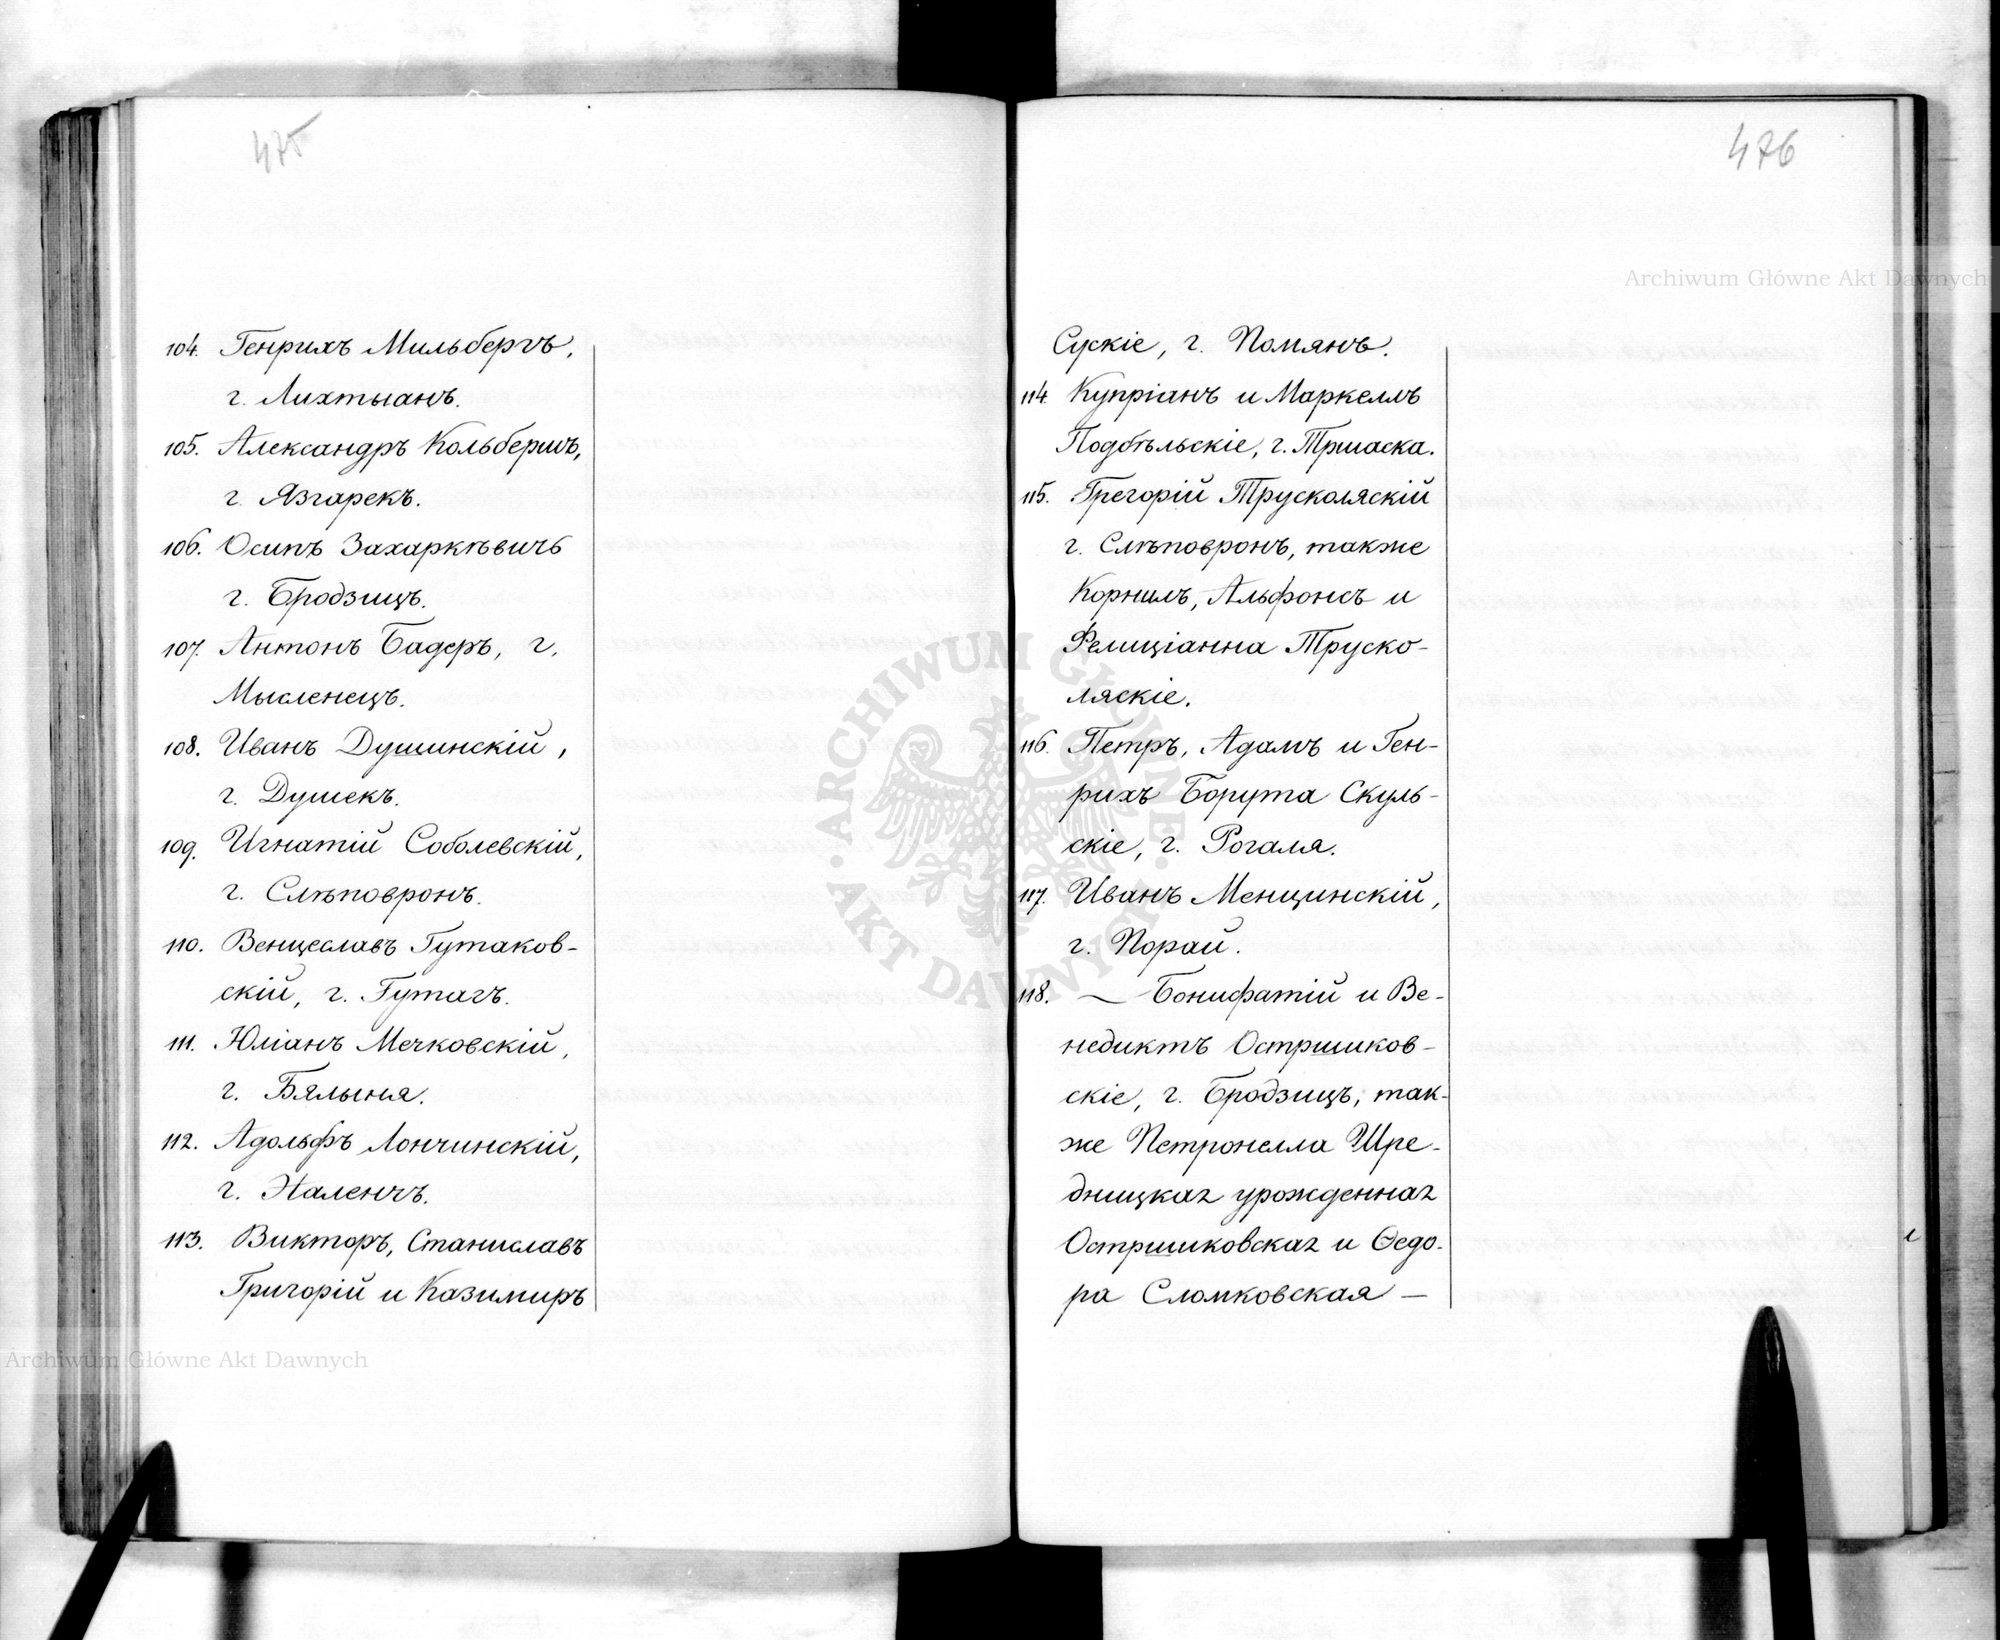 475
104. Генрихъ Мильбергъ,
г. Лихтыанъ.
105. Александръ Кольбергъ,
г. Язгарекъ.
106. Осипъ Захаркѣвичъ
г. Бродзицъ.
107. Антонъ Бадеръ, г.
Мысленецъ.
108. Иванъ Душинскій,
г. Душекъ.
109. Игнатій Соболевскій,
г. Слѣповронъ.
110. Венцеславъ Гутаков-
скій, г. Гутагъ.
111. Юліанъ Мечковскій,
г. Бялыня.
112. Адольфъ Лончинскій,
г. Наленчъ.
113. Викторъ, Станиславъ
Григорій и Казимиръ
476
Сускіе, г. Помянъ.
114. Купріанъ и Маркеллъ
Подбѣльскіе, г. Тршаска.
115. Грегорій Трусколяскій
г. Слѣповронъ, также
Корнилъ, Альфонсъ и
Фелиціанна Труско-
ляскіе.
116. Петръ, Адамъ и Ген-
рихъ Борута Скуль-
скіе, г. Рогаля.
117. Иванъ Менцинскій,
г. Порай.
118. — Бонифатій и Ве-
недиктъ Остршиков-
скіе, г. Бродзицъ; так-
же Петронелла Шре-
дницкая урожденная
Остршиковская и Ѳедо-
ра Сломковская —
Archiwum Główne Akt Dawnych
Archiwum Główne Akt Dawnych
ARCHIWUM GŁÓWNE AKT DAWNYCH